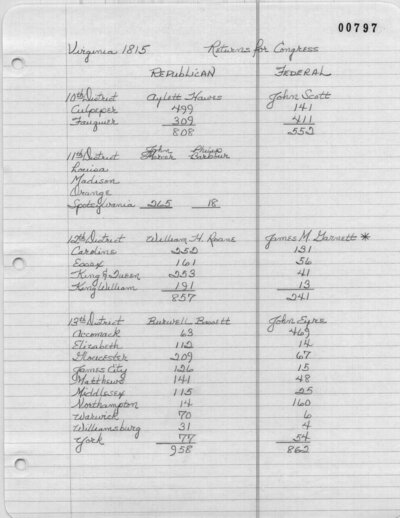 00797
Virginia 1815 Returns for Congress
REPUBLICAN FEDERAL
10th District Aylett Hawes John Scott
Culpeper 499 141
Fauquier 309 411
808 552
11th District John Mercer Philip Barbour
Louisa
Madison
Orange
Spotsylvania 265 18
12th District William H. Roane James M. Garnett *
Caroline 252 131
Essex 161 56
King & Queen 253 41
King William 191 13
857 241
13th District Burwell Bassett John Eyre
Accomack 63 469
Elizabeth 112 14
Gloucester 209 67
James City 126 15
Matthews 141 48
Middlesex 115 25
Northampton 14 160
Warwick 70 6
Williamsburg 31 4
York 77 54
958 862